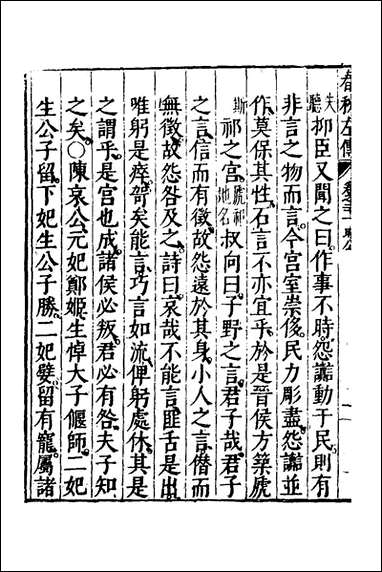 春秋左傳
失聽抑臣又聞之曰作事不時怨讟動于民則有
非言之物而言今宮室崇侈民力彫盡怨讟並
作莫保其性石言不亦宜乎於是晉侯方築虒
斯祁之宮虒祁地名叔向曰子野之言君子哉君子
之言信而有徵故怨遠於其身小人之言僭而
無徵故怨咎及之詩曰哀哉不能言匪舌是出
唯躬是瘁哿矣能言巧言如流俾躬處休其是
之謂乎是宮也成諸侯必叛君必有咎夫子知
之矣〇陳哀公元妃鄭姬生悼大子偃師二妃
生公子留下妃生公子勝二妃嬖留有寵屬諸